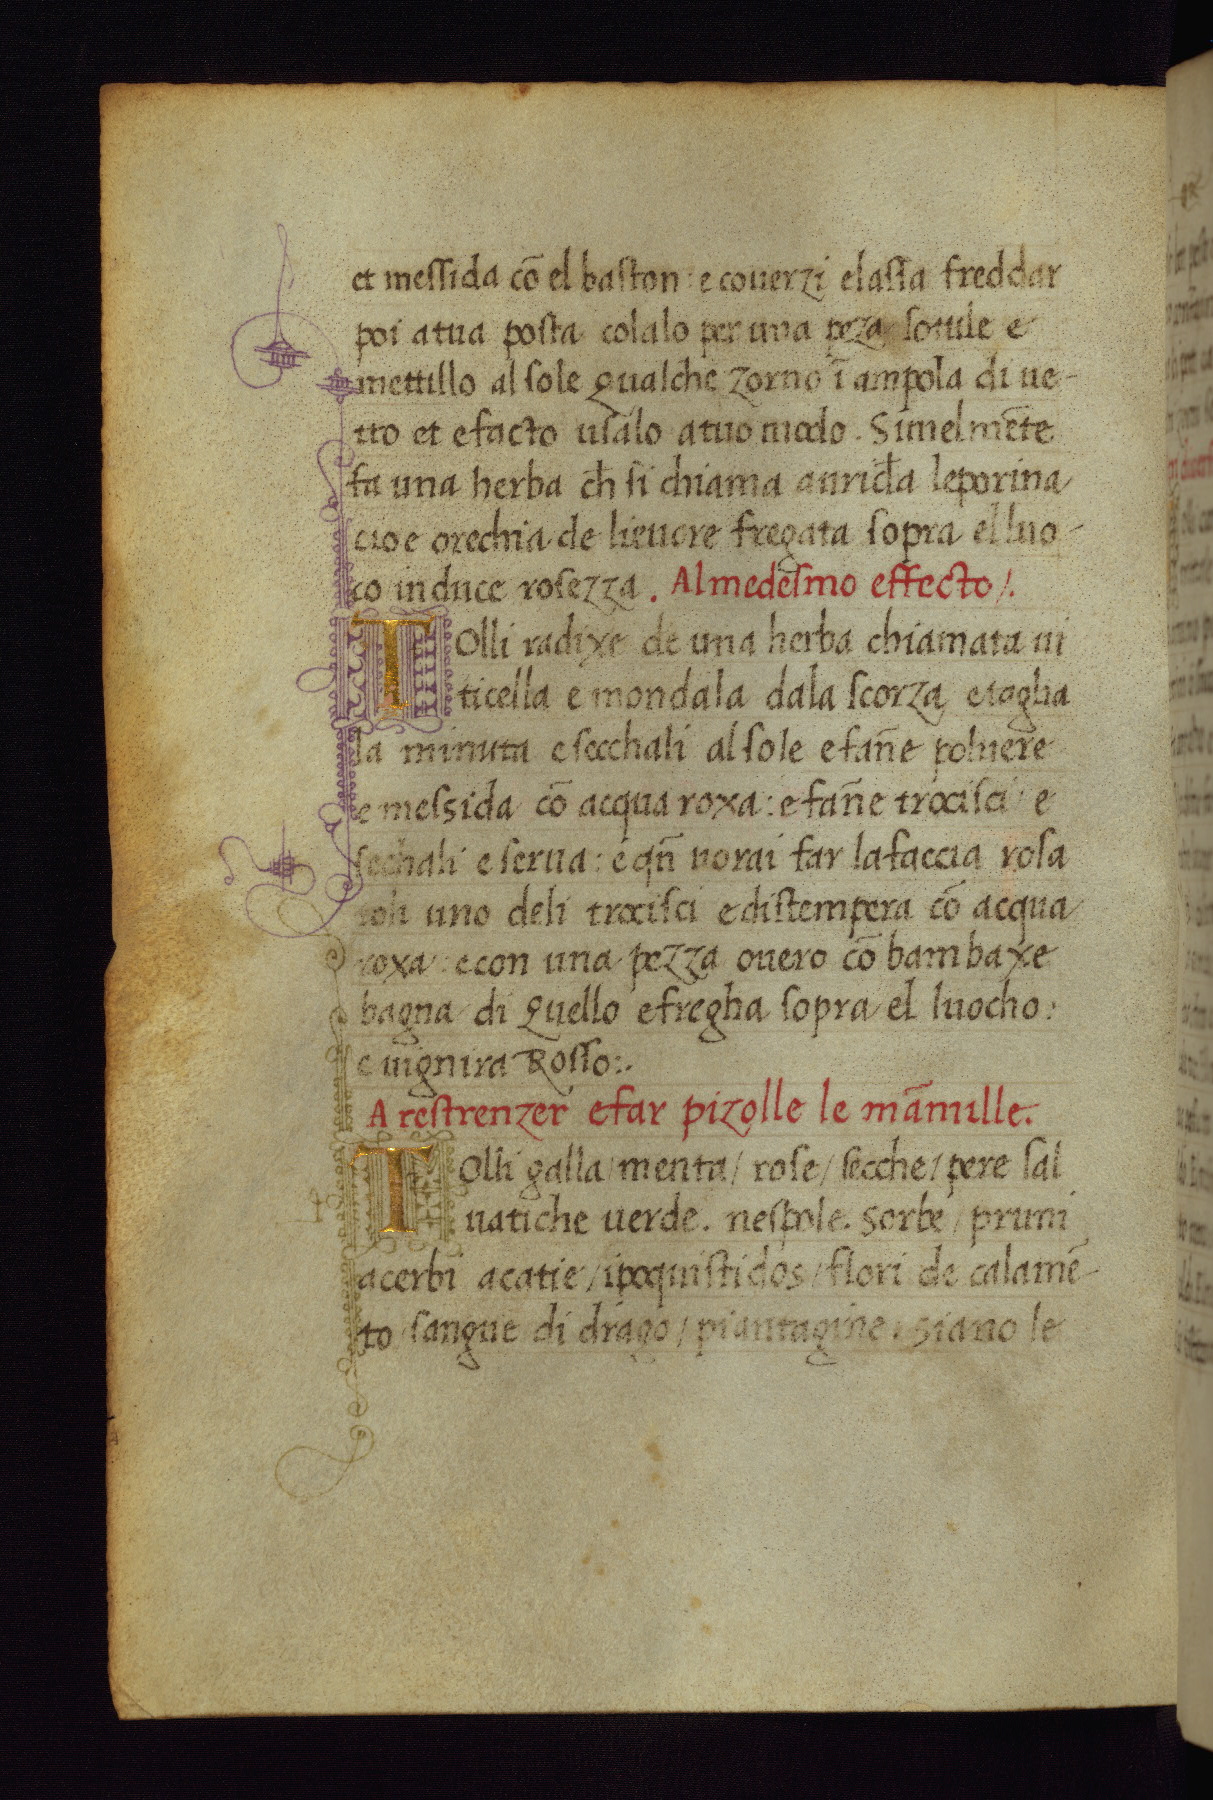 et messida cō el baston : e couerzi elassa freddar
poi atua posta colalo per una peza sotile e
mettillo al sole qualche zorno ī ampola di ue-
tro et efacto usalo atuo modo. Simelmēte
fa una herba ch̄ si chiama auricl̄a leporina
cioe orechia de lieuore fregata sopra el luo-
co induce rosezza. Al medesmo effecto/.
TOlli radixe de una herba chiamata ui
ticella e mondala dala scorza etaglia
la minuta e secchali al sole efan̄e poluere
e messida cō acqua roxa : e fan̄e trocisci e
sechali e serua : e qn̄ uorai far lafaccia rosa
toli uno deli trocisci edistempera cō acqua
roxa : econ una pezza ouero cō bambaxe
bagna di quello efregha sopra el luocho :
e uignira Rosso :.
A restrenzer efar pizolle le mām̄ille.
TOlli galla / menta / rose / secche / pere sal
uatiche uerde. nespole. Sorbe / pruni
acerbi acatie / ipoquistidos / flori de calamē-
to / sangue di drago / piantagine. siano le